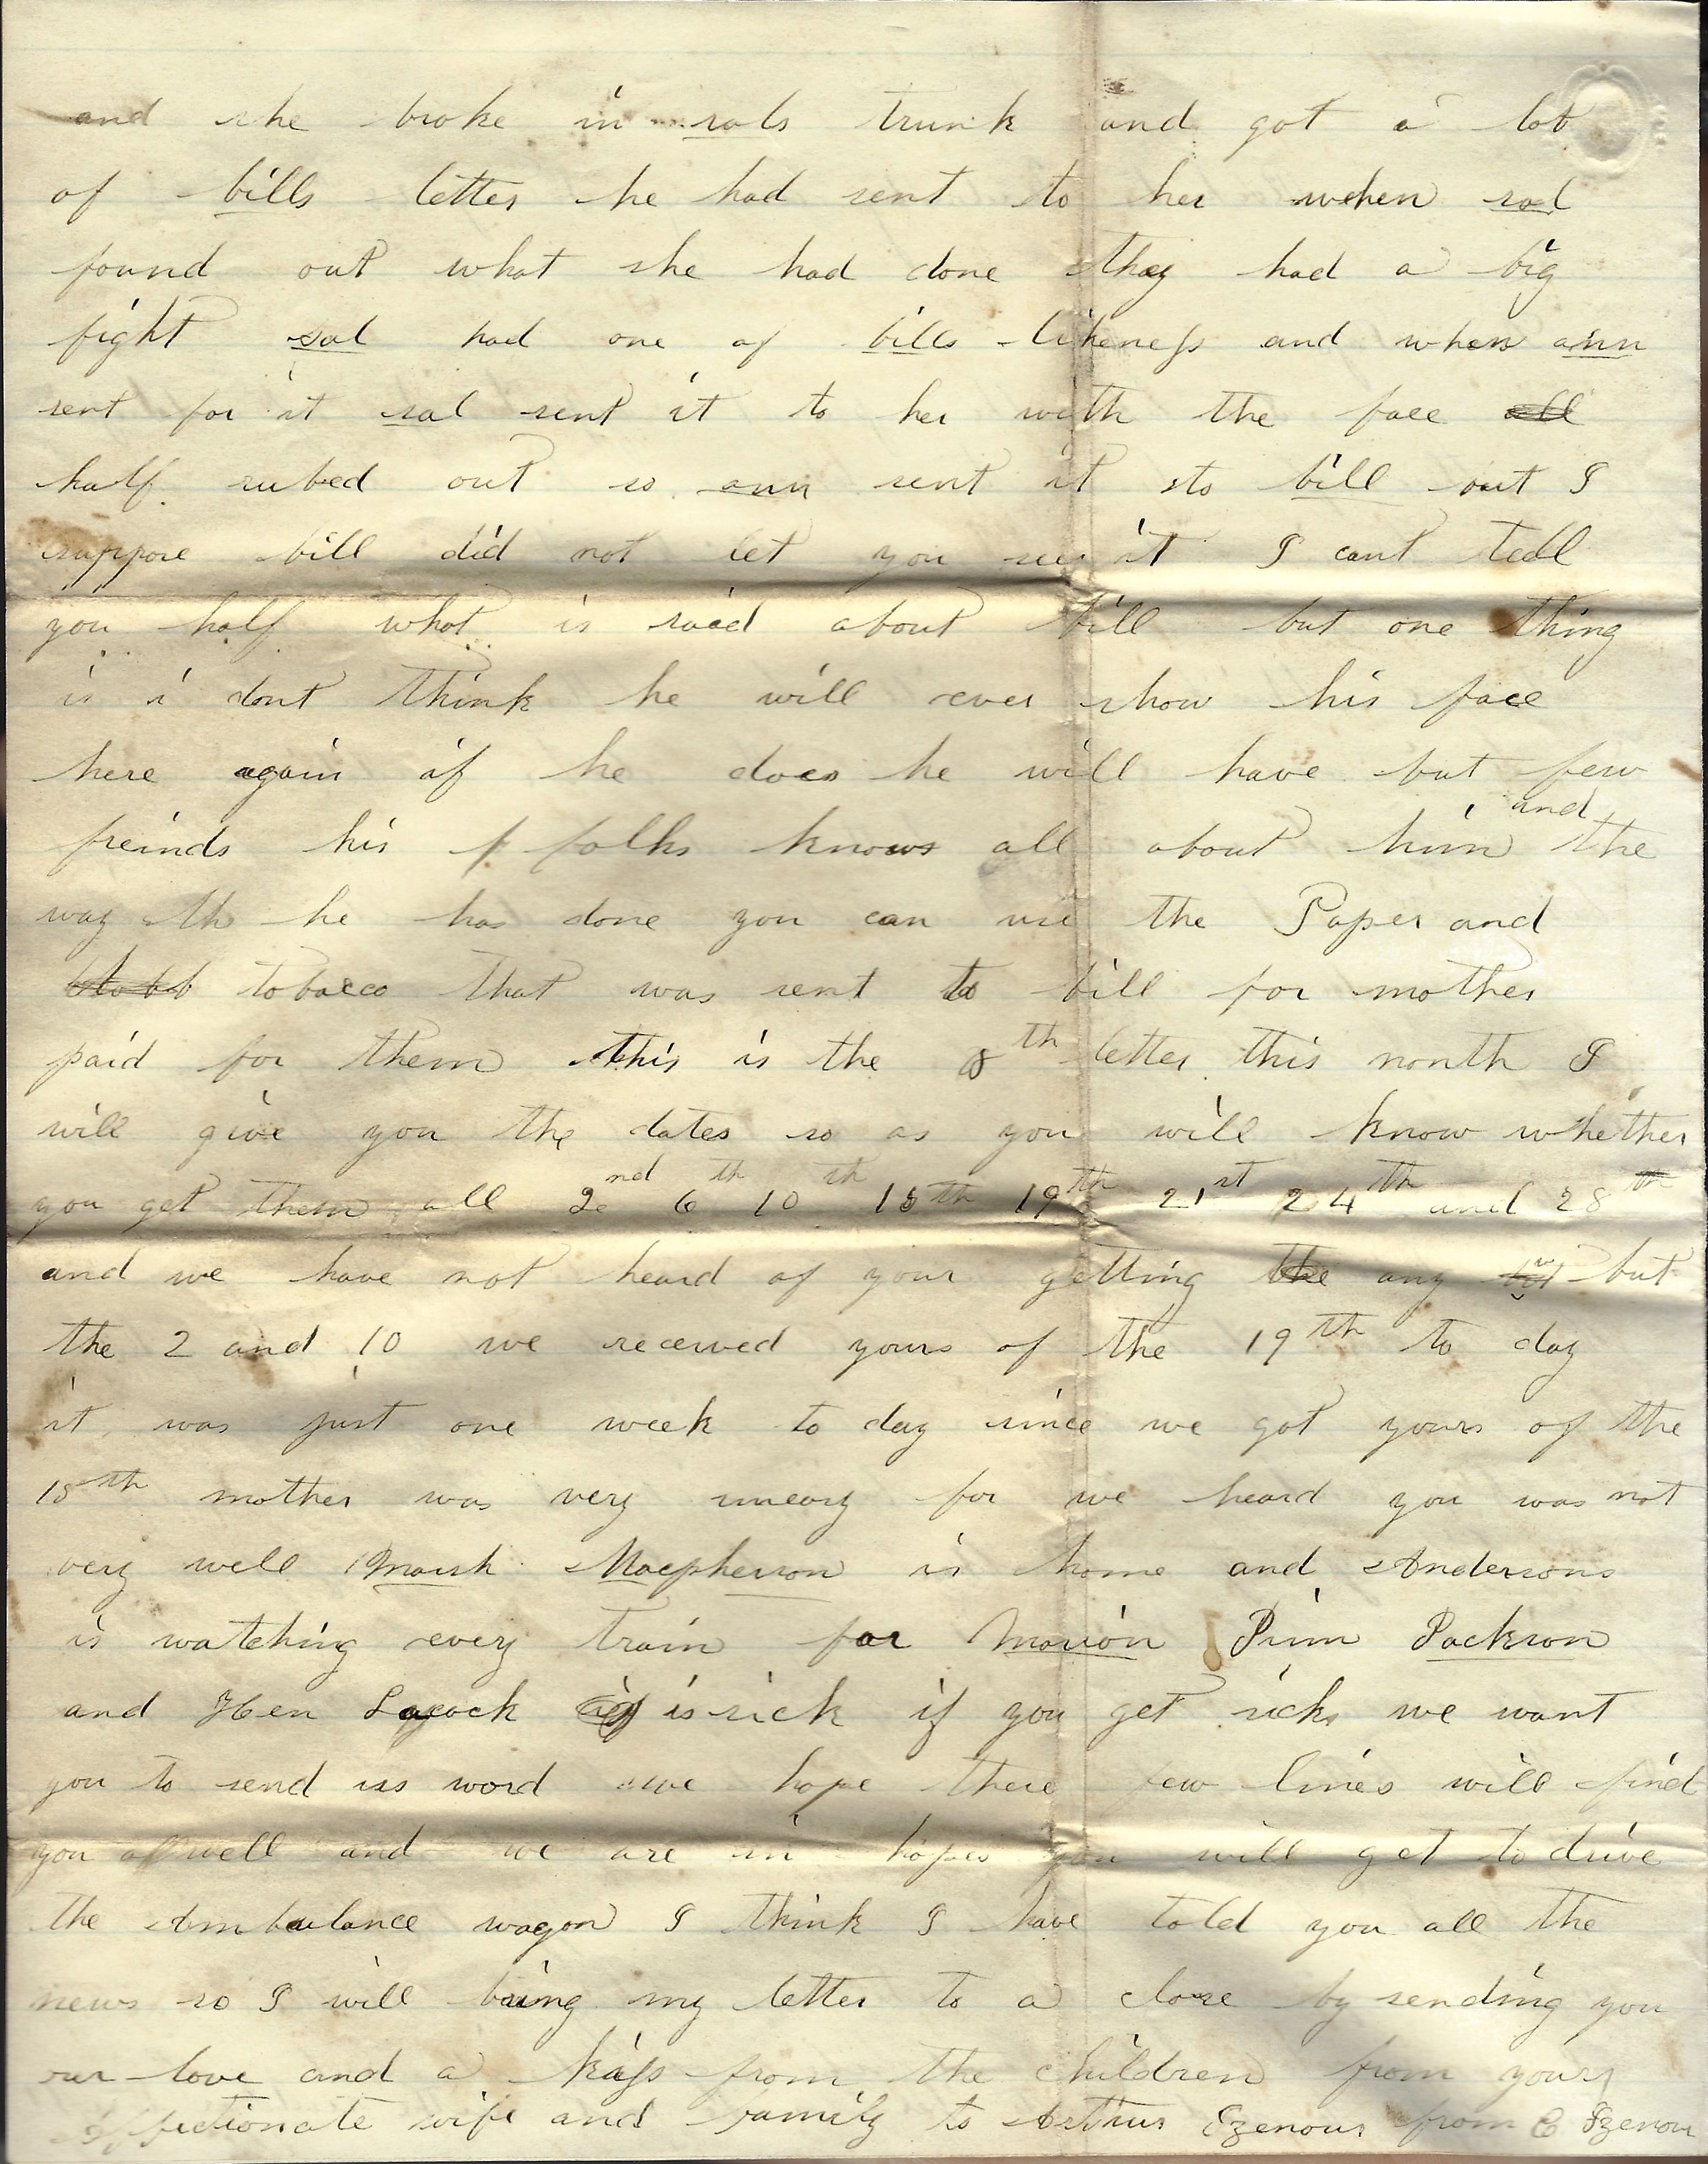 and she broke in sals trunk and got a lot
of bills letter he had sent to her when sal
found out what she had done they had a big
fight sal had one of bills likeness and when ann
sent for it sal sent it to her with the face
half rubed out so ann sent it to bill but I
suppose bill did not let you see it I cant tell
you half what is said about bill but one thing
is i dont think he will ever show his face
here again if he does he will have but few
freinds his f folks knows all about him and the
way th he has done you can use the Paper and
tobacco that was sent to bill for mother
paid for them this is the 8th letter this month I
will give you the dates so as you will know whether
you get them all 2nd 6th 10th 15th 19th 21st 24th and 28th
and we have not heard of your getting any but
the 2 and 10 we received yours of the 19th to day
it was just one week to day since we got yours of the
15th mother was very uneasy for we heard you was not
very well Marsh Macpherson is home and Andersons
is watching every train for Marion Pim Jackson
and Hen Laycock is sick if you get sick we want
you to send us word we hope these few lines will find
you well and we are in hopes you will get to drive
the Ambulance wagon I think I have told you all the
news so I will bring my letter to a close by sending you
our love and a kiss from the children from your
Affectionate wife and family to Arthur Ezenour from C Ezenour